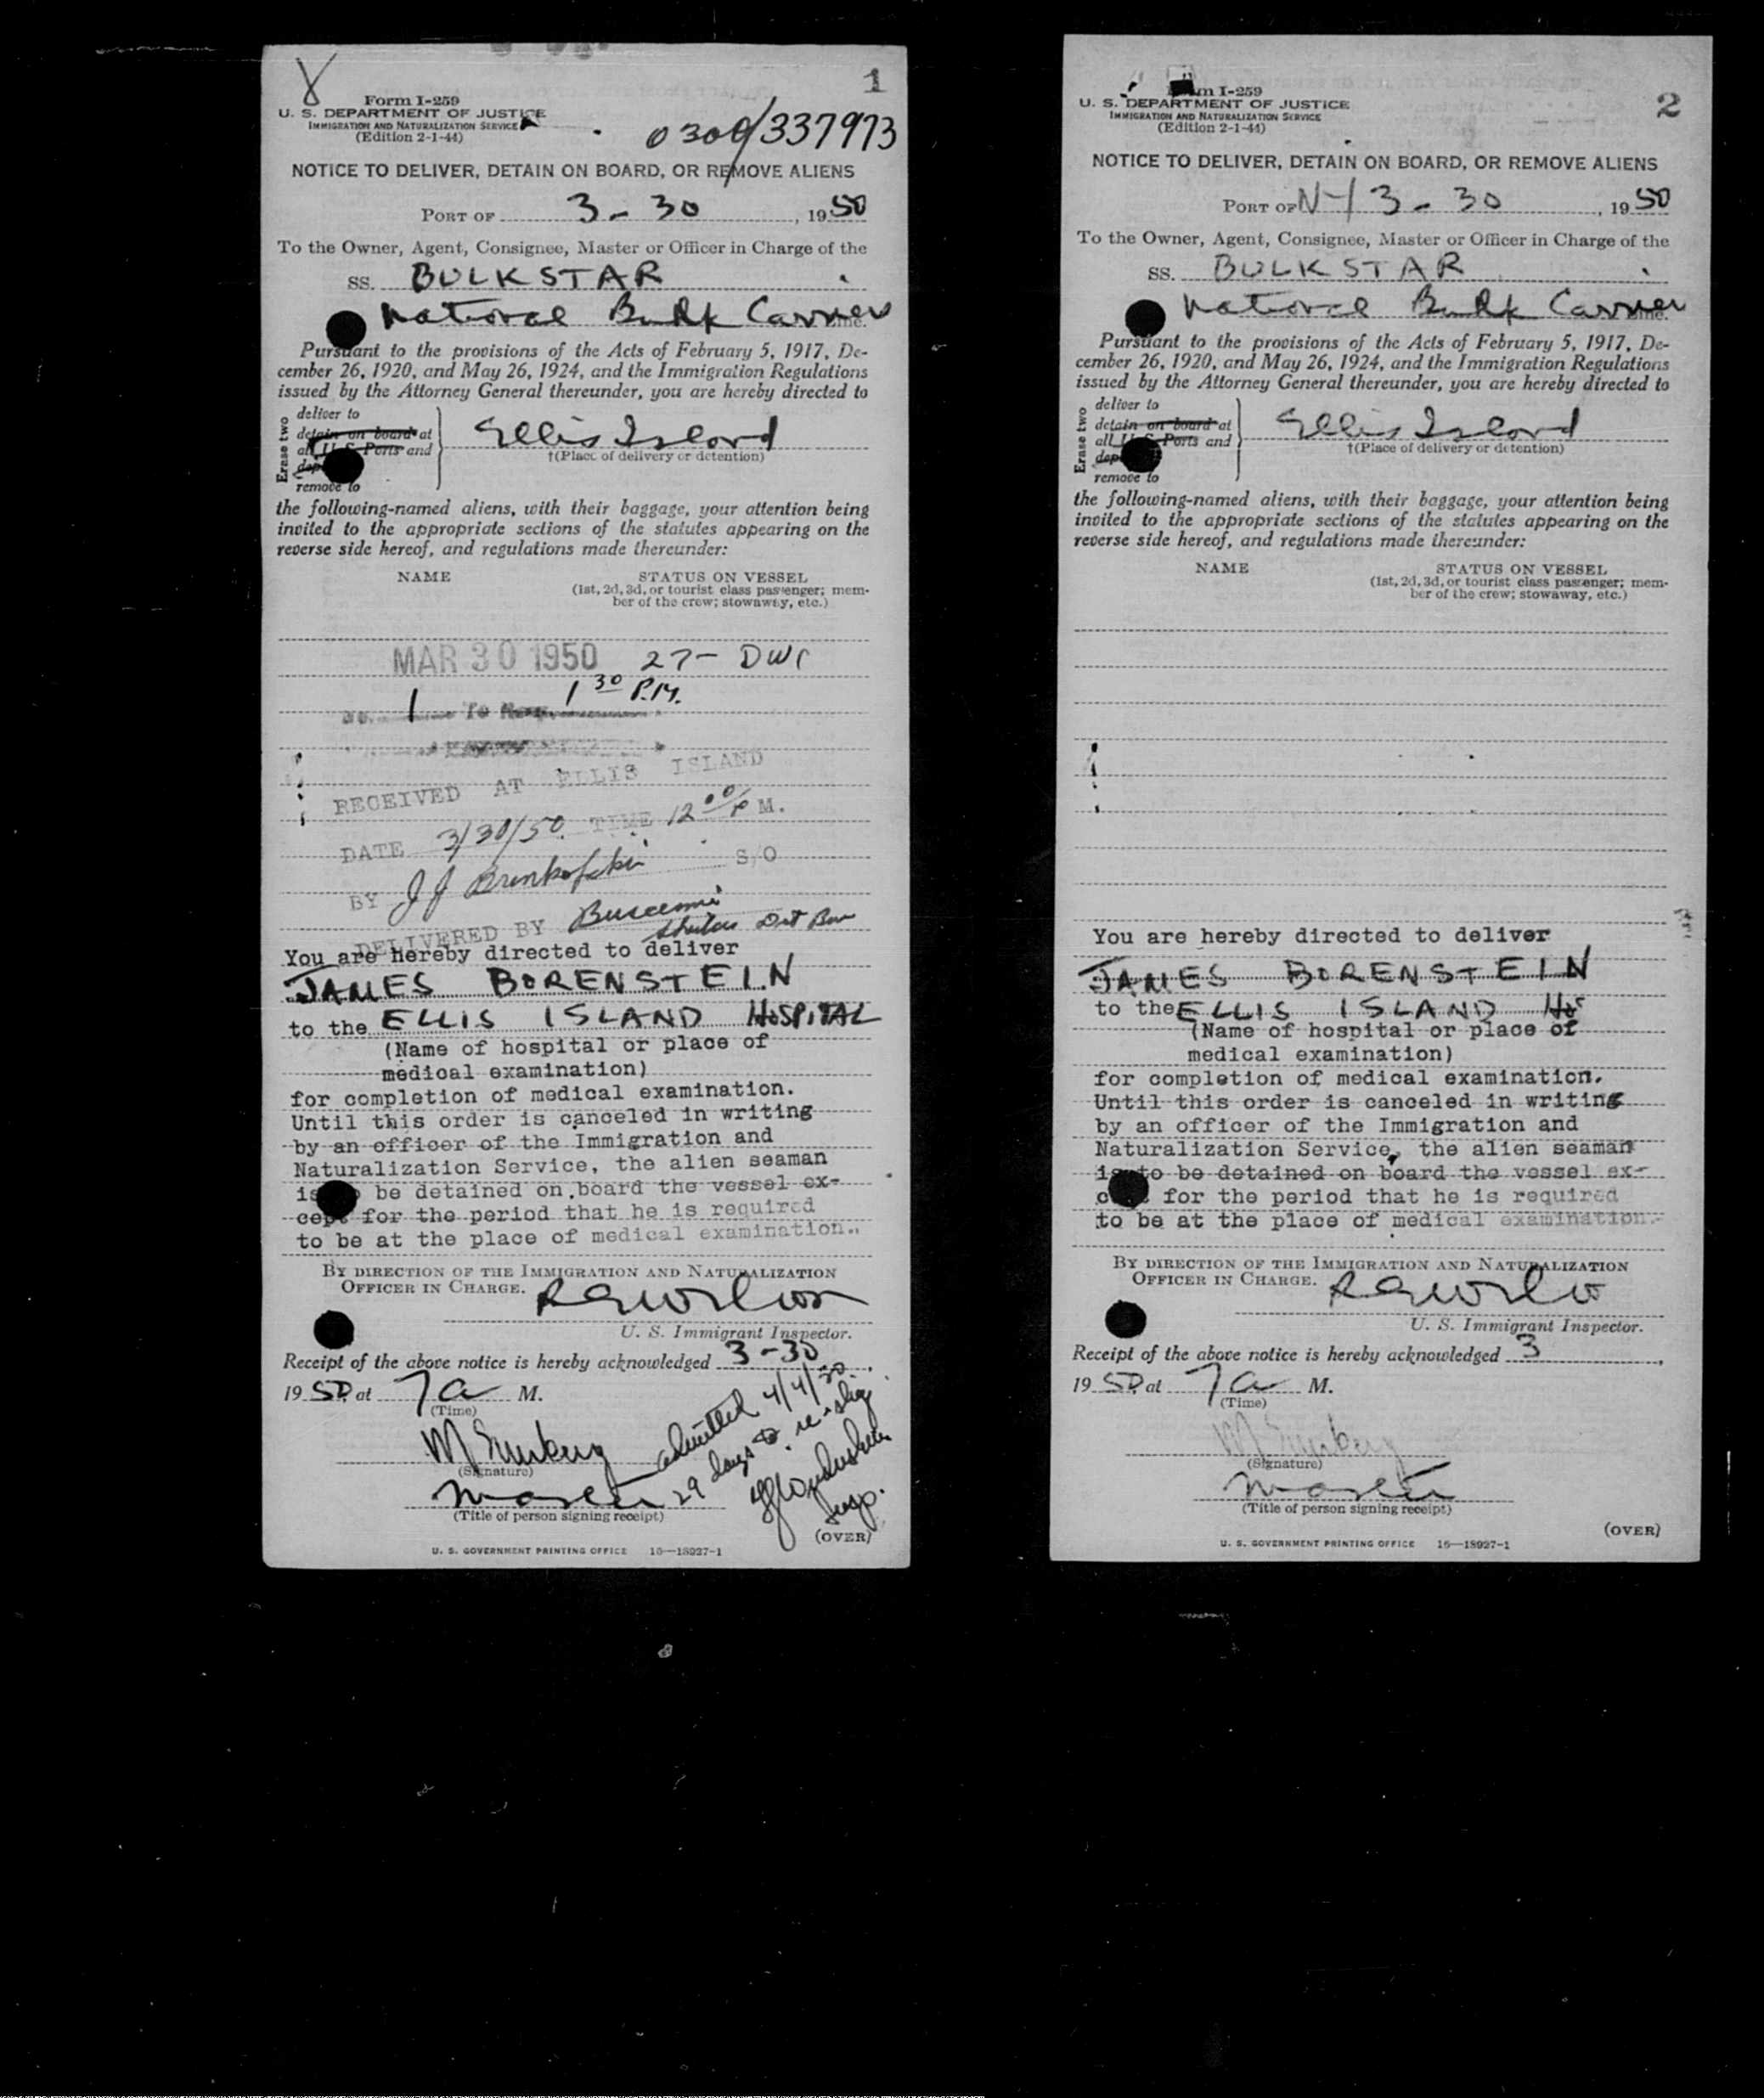 1
Form I-259
U. S. DEPARTMENT OF JUSTICE
IMMIGRATION AND NATURALIZATION SERVICE
(Edition 2-1-44)
0300/337973
NOTICE TO DELIVER, DETAIN ON BOARD, OR REMOVE ALIENS
PORT OF 3-30, 1950
To the Owner, Agent, Consignee, Master or Officer in Charge of the
SS. BULKSTAR
National Bulk Carriers
Pursuant to the provisions of the Acts of February 5, 1917, De-
cember 26, 1920, and May 26, 1924, and the Immigration Regulations
issued by the Attorney General thereunder, you are hereby directed to
Erase two
deliver to
detain on board at
all U. S. Ports and
remove to
Ellis Island
†(Place of delivery or detention)
the following-named aliens, with their baggage, your attention being
invited to the appropriate sections of the statutes appearing on the
reverse side hereof, and regulations made thereunder:
NAME STATUS ON VESSEL
(1st, 2d, 3d, or tourist class passenger; mem-
ber of the crew; stowaway, etc.)
MAR 30 1950 27-
1 30 P.M.
1 To
RECEIVED AT ELLIS ISLAND
DATE 3/30/50 TIME 12 00/P M.
BY J J S/O
DELIVERED BY Buscemi
You are hereby directed to deliver
JAMES BORENSTEIN
to the ELLIS ISLAND HOSPITAL
(Name of hospital or place of
medical examination)
for completion of medical examination.
Until this order is canceled in writing
by an officer of the Immigration and
Naturalization Service, the alien seaman
is be detained on board the vessel ex-
cept for the period that he is required
to be at the place of medical examination.
BY DIRECTION OF THE IMMIGRATION AND NATURALIZATION
OFFICER IN CHARGE.
U. S. Immigrant Inspector.
Receipt of the above notice is hereby acknowledged 3-30,
1950 at 7 a M.
(Time)
(Signature)
Master
(Title of person signing receipt)
admitted 4/4/50
29 days re-ship
Insp.
(OVER)
U. S. GOVERNMENT PRINTING OFFICE 16—18927-1
2
Form I-259
U. S. DEPARTMENT OF JUSTICE
IMMIGRATION AND NATURALIZATION SERVICE
(Edition 2-1-44)
NOTICE TO DELIVER, DETAIN ON BOARD, OR REMOVE ALIENS
PORT OF NY 3-30, 1950
To the Owner, Agent, Consignee, Master or Officer in Charge of the
SS. BULKSTAR
National Bulk Carriers
Pursuant to the provisions of the Acts of February 5, 1917, De-
cember 26, 1920, and May 26, 1924, and the Immigration Regulations
issued by the Attorney General thereunder, you are hereby directed to
Erase two
deliver to
detain on board at
all U. S. Ports and
remove to
Ellis Island
†(Place of delivery or detention)
the following-named aliens, with their baggage, your attention being
invited to the appropriate sections of the statutes appearing on the
reverse side hereof, and regulations made thereunder:
NAME STATUS ON VESSEL
(1st, 2d, 3d, or tourist class passenger; mem-
ber of the crew; stowaway, etc.)
You are hereby directed to deliver
JAMES BORENSTEIN
to the ELLIS ISLAND Ho
(Name of hospital or place of
medical examination)
for completion of medical examination.
Until this order is canceled in writing
by an officer of the Immigration and
Naturalization Service, the alien seaman
is to be detained on board the vessel ex-
for the period that he is required
to be at the place of medical examination.
BY DIRECTION OF THE IMMIGRATION AND NATURALIZATION
OFFICER IN CHARGE.
U. S. Immigrant Inspector.
Receipt of the above notice is hereby acknowledged 3,
1950 at 7 a M.
(Time)
(Signature)
Master
(Title of person signing receipt)
(OVER)
U. S. GOVERNMENT PRINTING OFFICE 16—18927-1